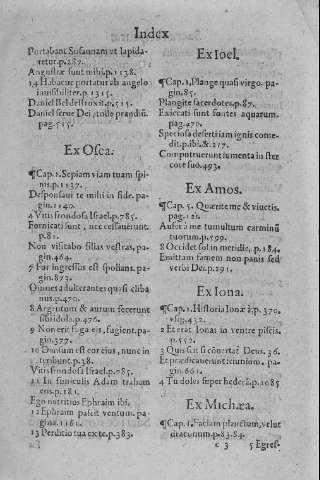 Index
Portabant Susannam vt lapidaretur.p.287.
Angustiæ sunt mihi.p.1138.
14 Habacuc portatur ab angelo
inuisibiliter.p.1315.
Daniel Bel destruxit.p.515.
Daniel serue Dei, tolle prandiũ.
pag.515.
Ex Osea.
¶Cap.1.Sepiam viam tuam spinis.p.1137.
Desponsaui te mihi in fide. pagin.1140.
4 Vitis frondosa Israel.p.785.
Fornicati sunt, nec cessauerunt.
p.81.
Non visitabo filias vestras, pagin.464.
7 Fur ingressus est spolians. pagin.873.
Omnes adulterantes quasi clibanus.p.470.
8 Argentum & aurum fecerunt
sibi idola.p.476.
9 Non erit fuga eis, fugient.pagin.377.
10 Diuisum est cor eius, nunc interibunt.p.38.
Vitis frondosa Israel.p.785.
11 In funiculis Adam traham
eos.p.181.
Ego nutritius Ephraim ibi.
12 Ephraim pascit ventum. pagina.1161.
13 Perditio tua ex te.p.383.
Ex Ioel.
¶Cap.1.Plange quasi virgo. pagin.85.
Plangite sacerdotes.p.87.
Exiccati sunt fontes aquarum.
pag.470.
Speciosa deserti iam ignis comedit.p.ibi.&.217.
Computruerunt iumenta in stercore suo.493.
Ex Amos.
¶Cap. 5. Quærite me & viuetis.
pag.121.
Aufer à me tumultum carminũ
tuorum.p.599.
8 Occidet sol in meridie, p.184.
Emittam famem non panis sed
verbi Dei.p.291.
Ex Iona.
¶Cap.1.Historia Ionæ à p.370.
vsq;432.
2 Et erat Ionas in ventre piscis.
p.552.
3 Quis scit si cõuertat Deus. 36.
Et prædicauerunt ieiunium. pagin.661.
4 Tu doles super hederã.p.1085
Ex Michæa.
¶Cap.1.Faciam planctum, velut
draconum.p.83.84.
c 3 5 Egres-